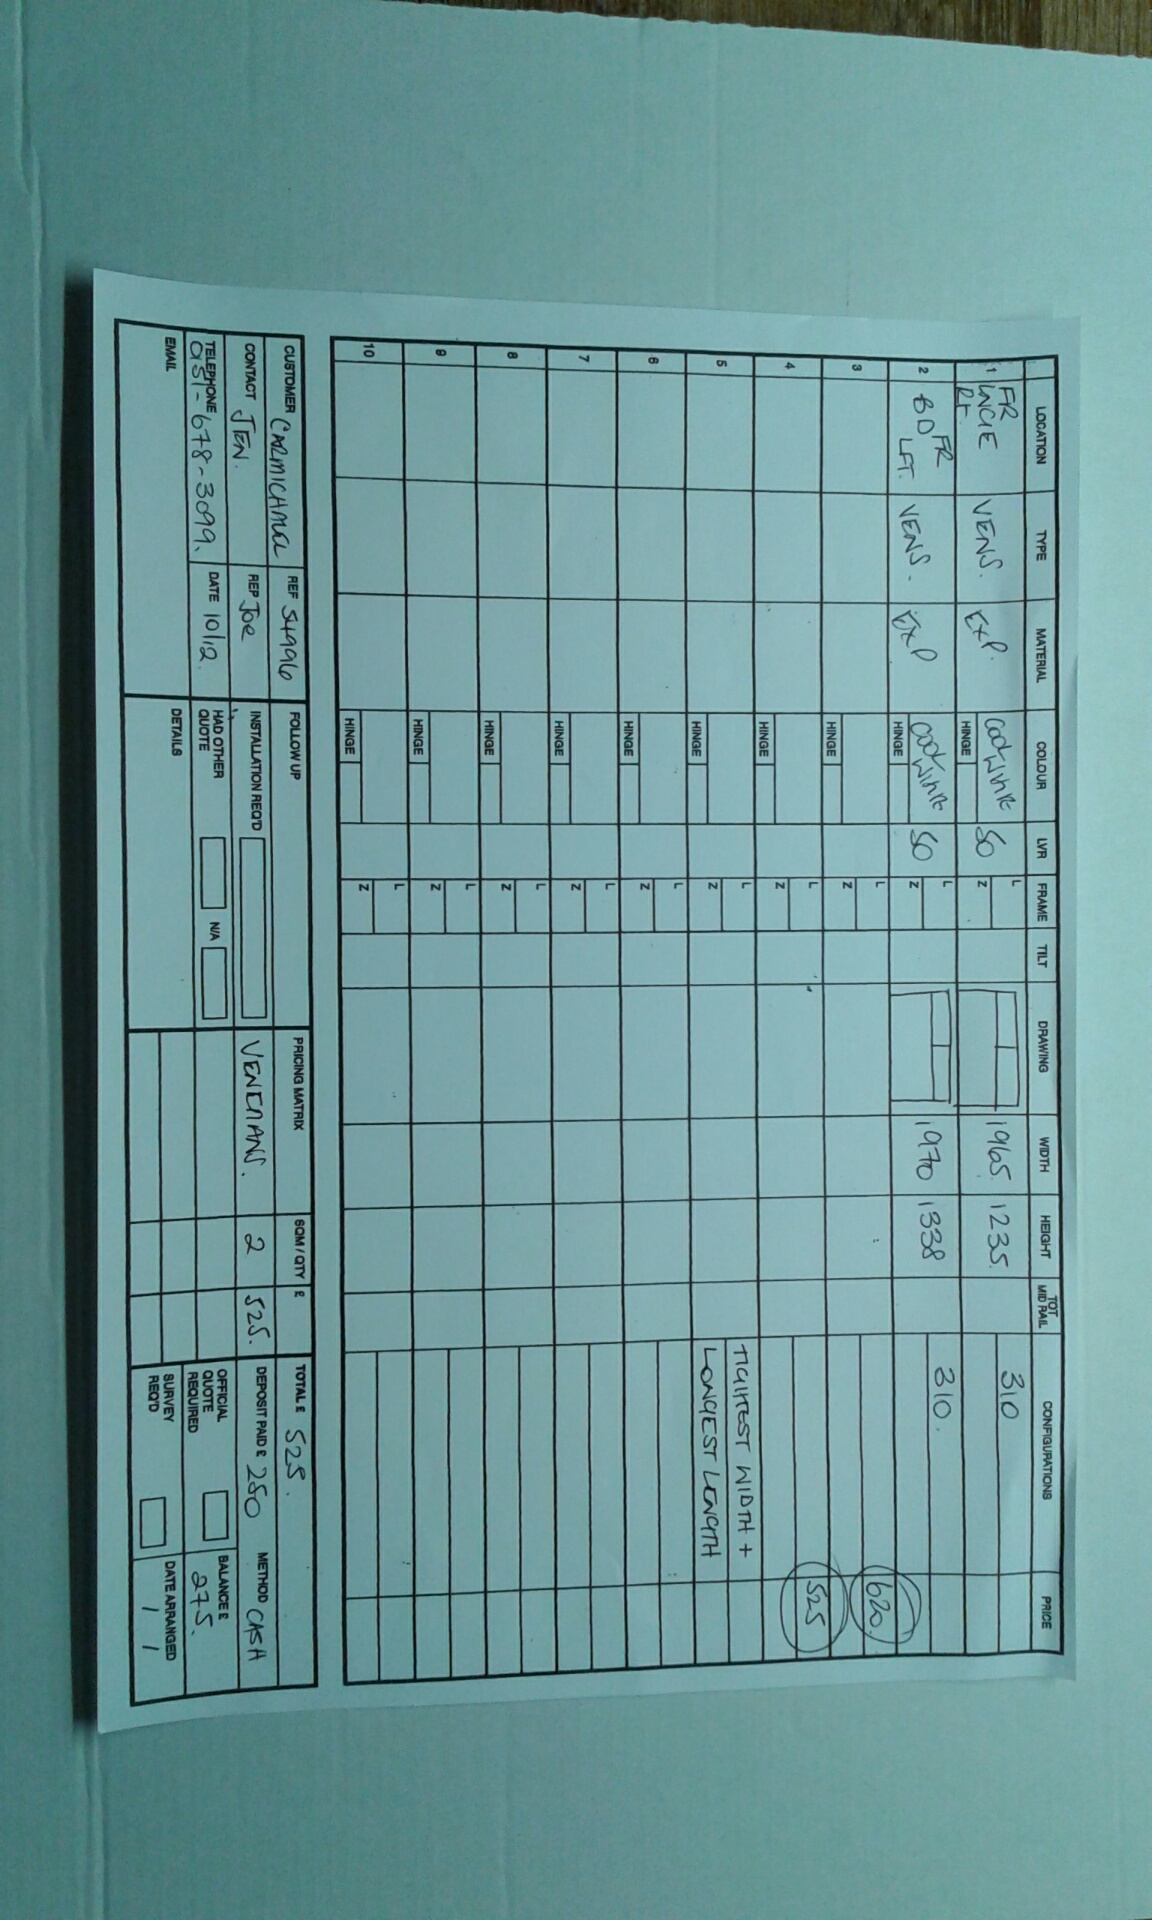 LOCATION TYPE MATERIAL COLOUR LVR FRAME TILT DRAWING WIDTH HEIGHT TOT MID RAIL CONFIGURATIONS PRICE
1 FR LNGE RT. VENS. EXP. COOL WHITE HINGE 50 L Z 1965. 1235. 310
2 BD FR LFT. VENS. EXP COOL WHITE HINGE 50 L Z 1970 1338 310.
3 HINGE L Z 620.
4 HINGE L Z 525
5 HINGE L Z TIGHTEST WIDTH +
LONGEST LENGTH
6 HINGE L Z
7 HINGE L Z
8 HINGE L Z
9 HINGE L Z
10 HINGE L Z
CUSTOMER CARMICHAEL REF 54996 FOLLOW UP PRICING MATRIX SQM / QTY £ TOTAL £ 525.
CONTACT JEN. REP JOE INSTALLATION REQ'D VENETIANS. 2 525. DEPOSIT PAID £ 250 METHOD CASH
TELEPHONE 0151-678-3099. DATE 10/12. HAD OTHER QUOTE N/A OFFICIAL QUOTE REQUIRED BALANCE £ 275.
EMAIL DETAILS SURVEY REQ'D DATE ARRANGED / /